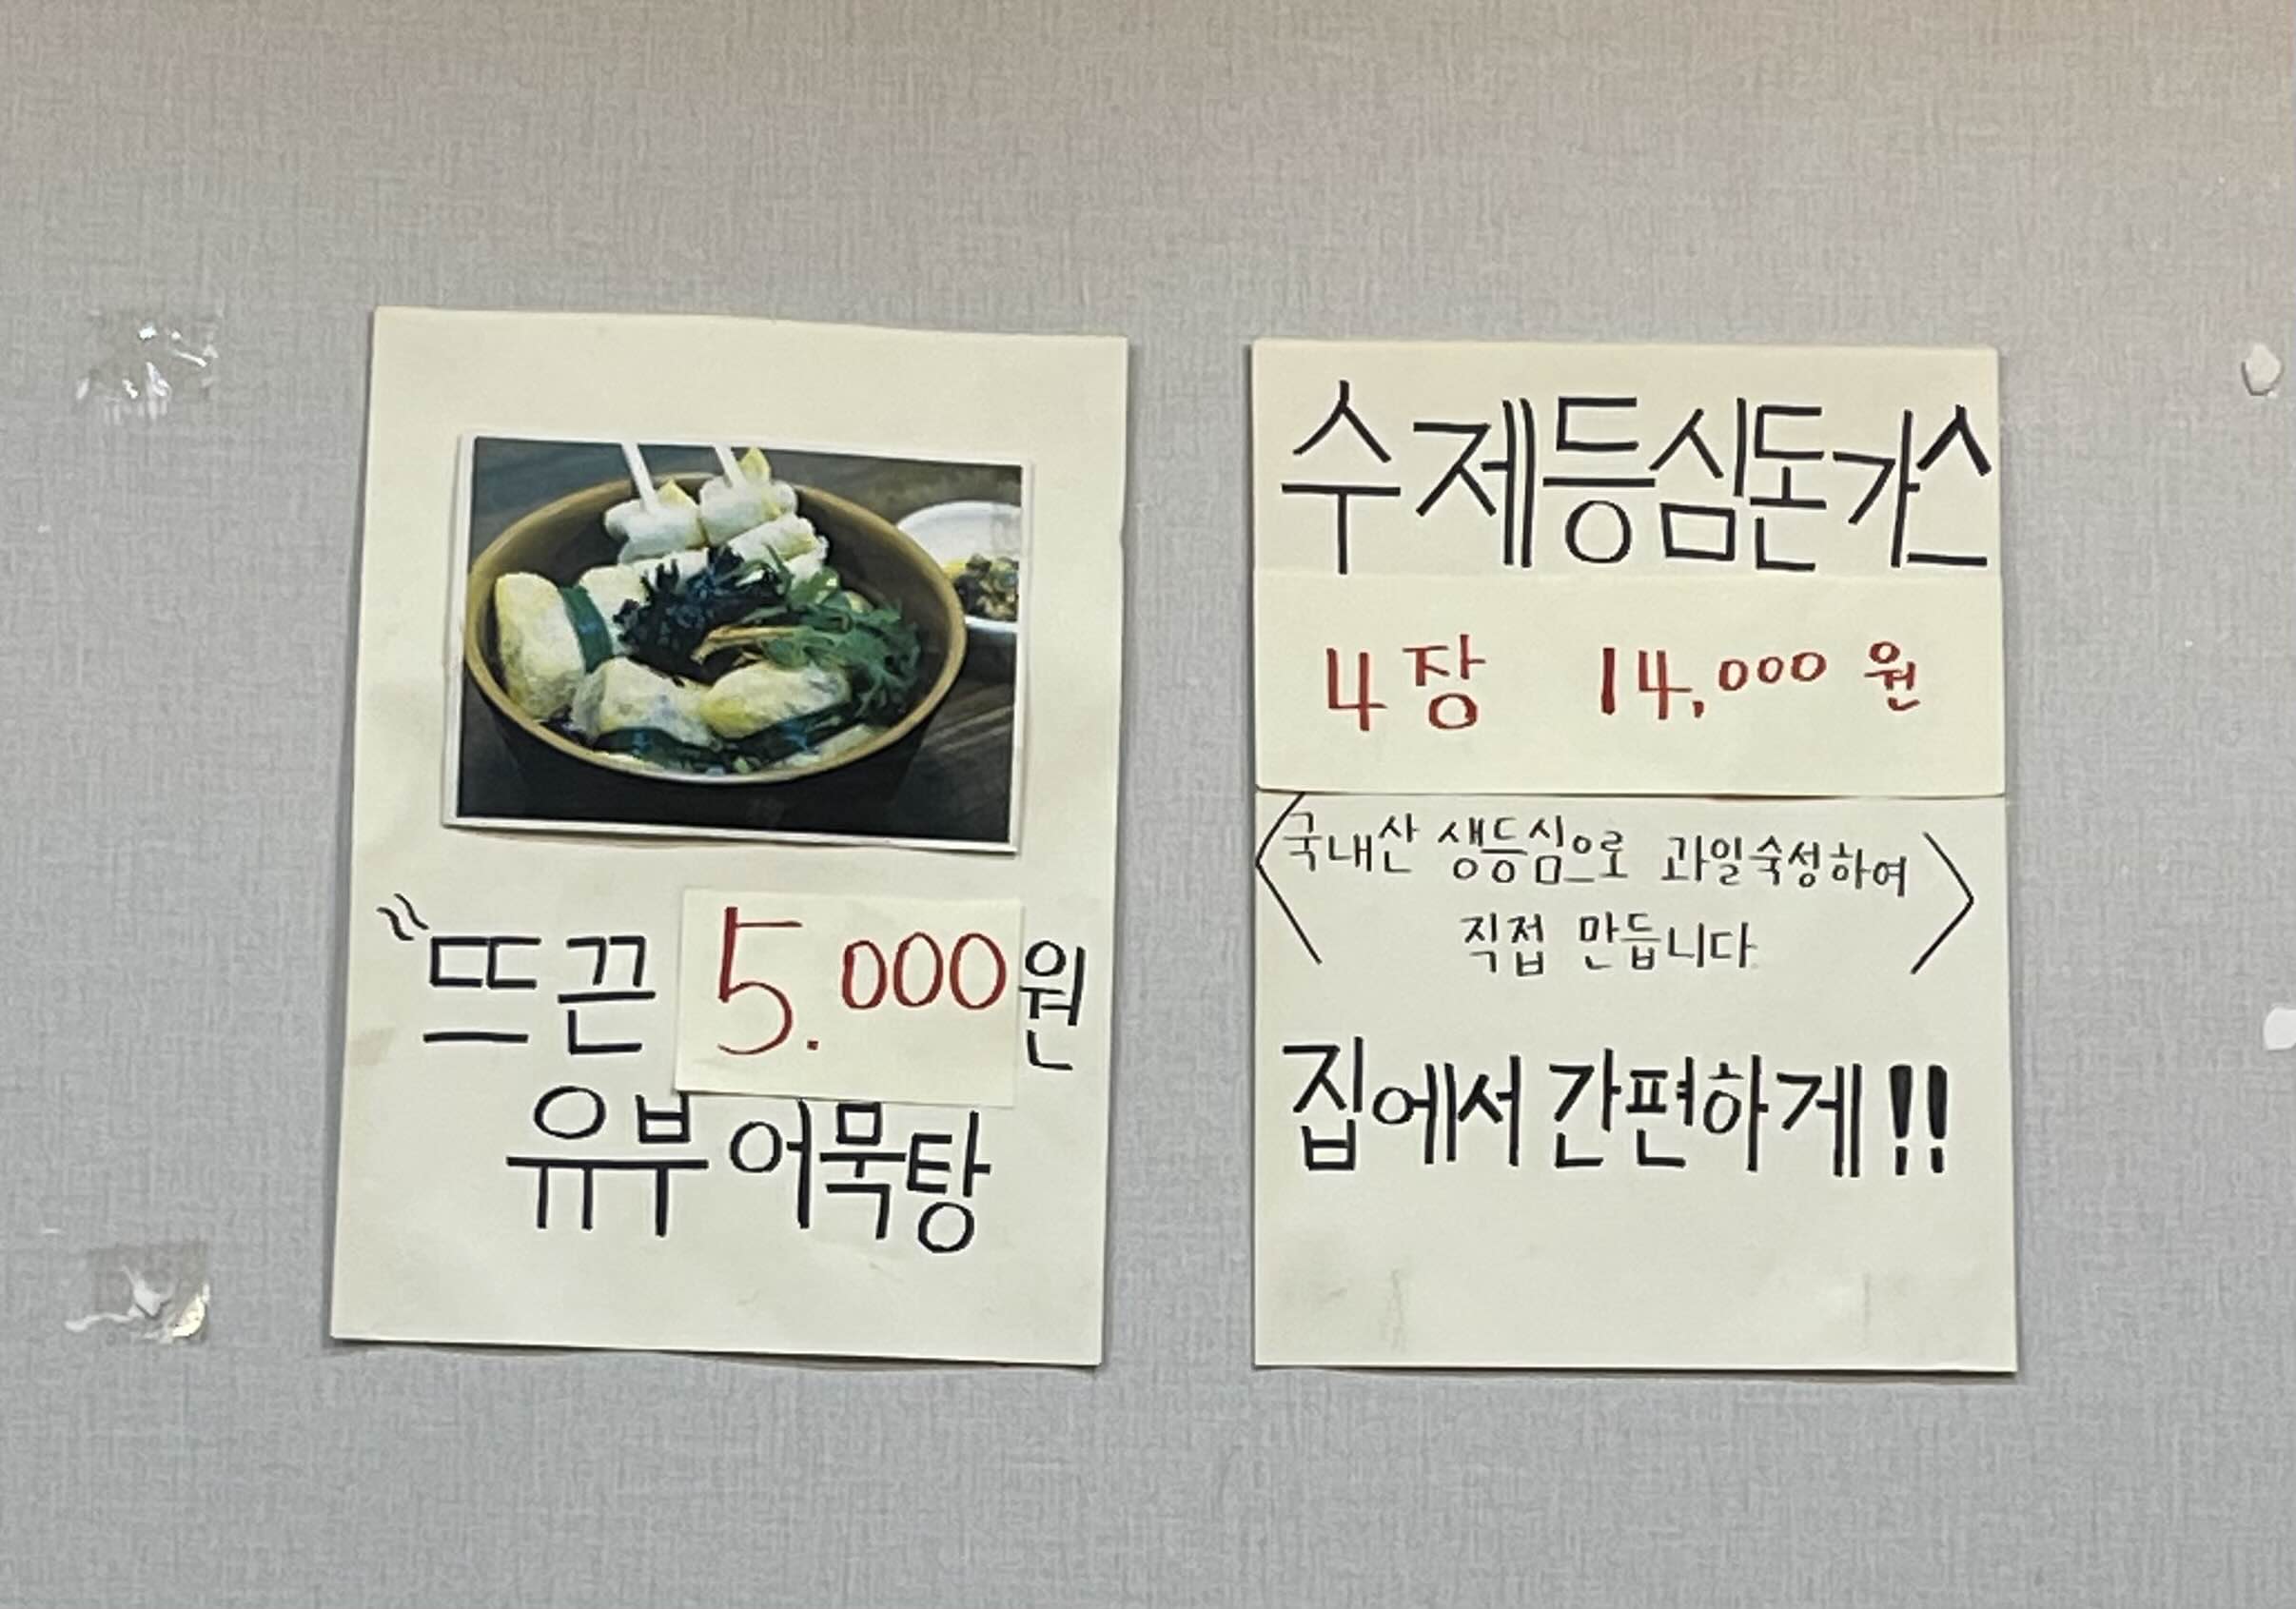 뜨끈 5.000원
유부어묵탕
수제등심돈갸스
4장 14,000원
<국내산 생등심으로 과일숙성하여
직접 만듭니다>
집에서 간편하게!!